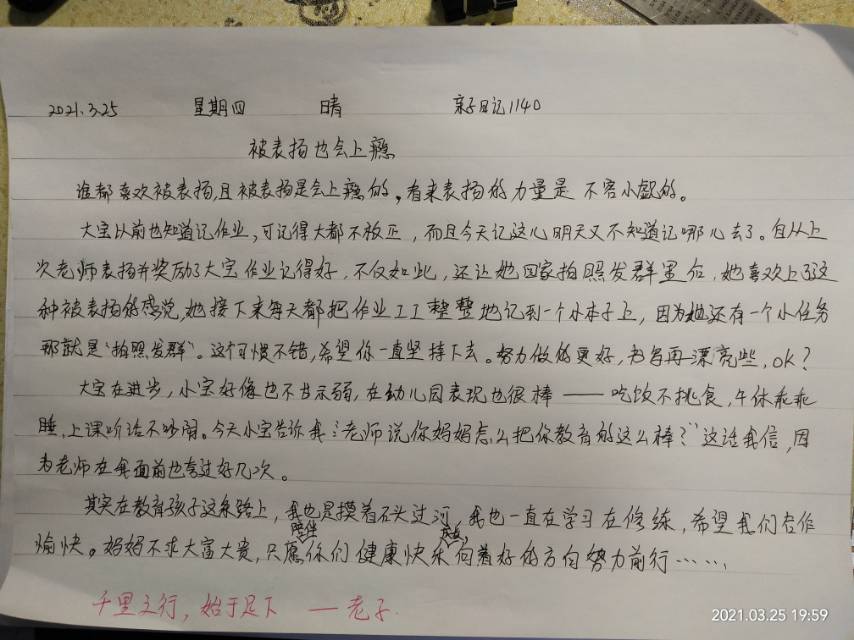 2021.3.25 星期四 晴 亲子日记1140
被表扬也会上瘾
谁都喜欢被表扬,且被表扬是会上瘾的,看来表扬的力量是不容小觑的。
大宝以前也知道记作业,可记得大都不放正,而且今天记这儿明天又不知道记哪儿去了。自从上
次老师表扬并奖励了大宝作业记得好,不仅如此,还让她回家拍照发群里后,她喜欢上了这
种被表扬的感觉,她接下来每天都把作业工工整整地记到一个小本子上,因为她还有一个小任务
那就是“拍照发群”。这个习惯不错,希望你一直坚持下去。努力做的更好,书写再漂亮些,OK?
大宝在进步,小宝好像也不甘示弱,在幼儿园表现也很棒——吃饭不挑食,午休乖乖
睡,上课听话不吵闹。今天小宝告诉我:老师说你妈妈怎么把你教育的这么棒?”这话我信,因
为老师在我面前也夸过好几次。
其实在教育孩子这条路上,我也是摸着石头过河,我也一直在学习在修练,希望我们合作
愉快。妈妈不求大富大贵,只愿陪伴你们健康快乐成长,向着好的方向努力前行……
千里之行,始于足下 —老子.
2021.03.25 19:59